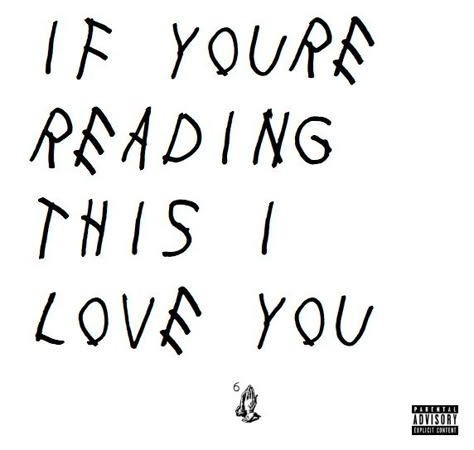 IF YOURE
READING
THIS I
LOVE YOU
6
PARENTAL
ADVISORY
EXPLICIT CONTENT